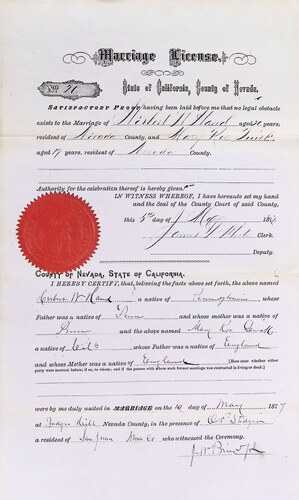 Marriage License.
No. 20 State of California, County of Nevada.
SATISFACTORY PROOF having been laid before me that no legal obstacle
exists to the Marriage of W. Hand aged years,
resident of Nevada County, and Mary
aged 19 years, resident of Nevada County.
Authority for the celebration thereof is hereby given.
IN WITNESS WHEREOF, I have hereunto set my hand
and the Seal of the County Court of said County,
this 5th day of May 187
James Clerk.
Deputy.
COUNTY OF NEVADA, STATE OF CALIFORNIA.
I HEREBY CERTIFY, that, believing the facts above set forth, the above named
W. Hand a native of Pennsylvania whose
Father was a native of Penn and whose mother was a native
of Penn and the above named Mary
a native of Cal whose Father was a native of England
and whose Mother was a native of England (Here state whether either
party were married before; if so, to whom; and if the person with whom such former marriage was contracted is living or dead.)
were by me duly united in MARRIAGE on the 10 day of May 1877
at Nevada County, in the presence of
a resident of San Juan Nevada Co who witnessed the Ceremony.